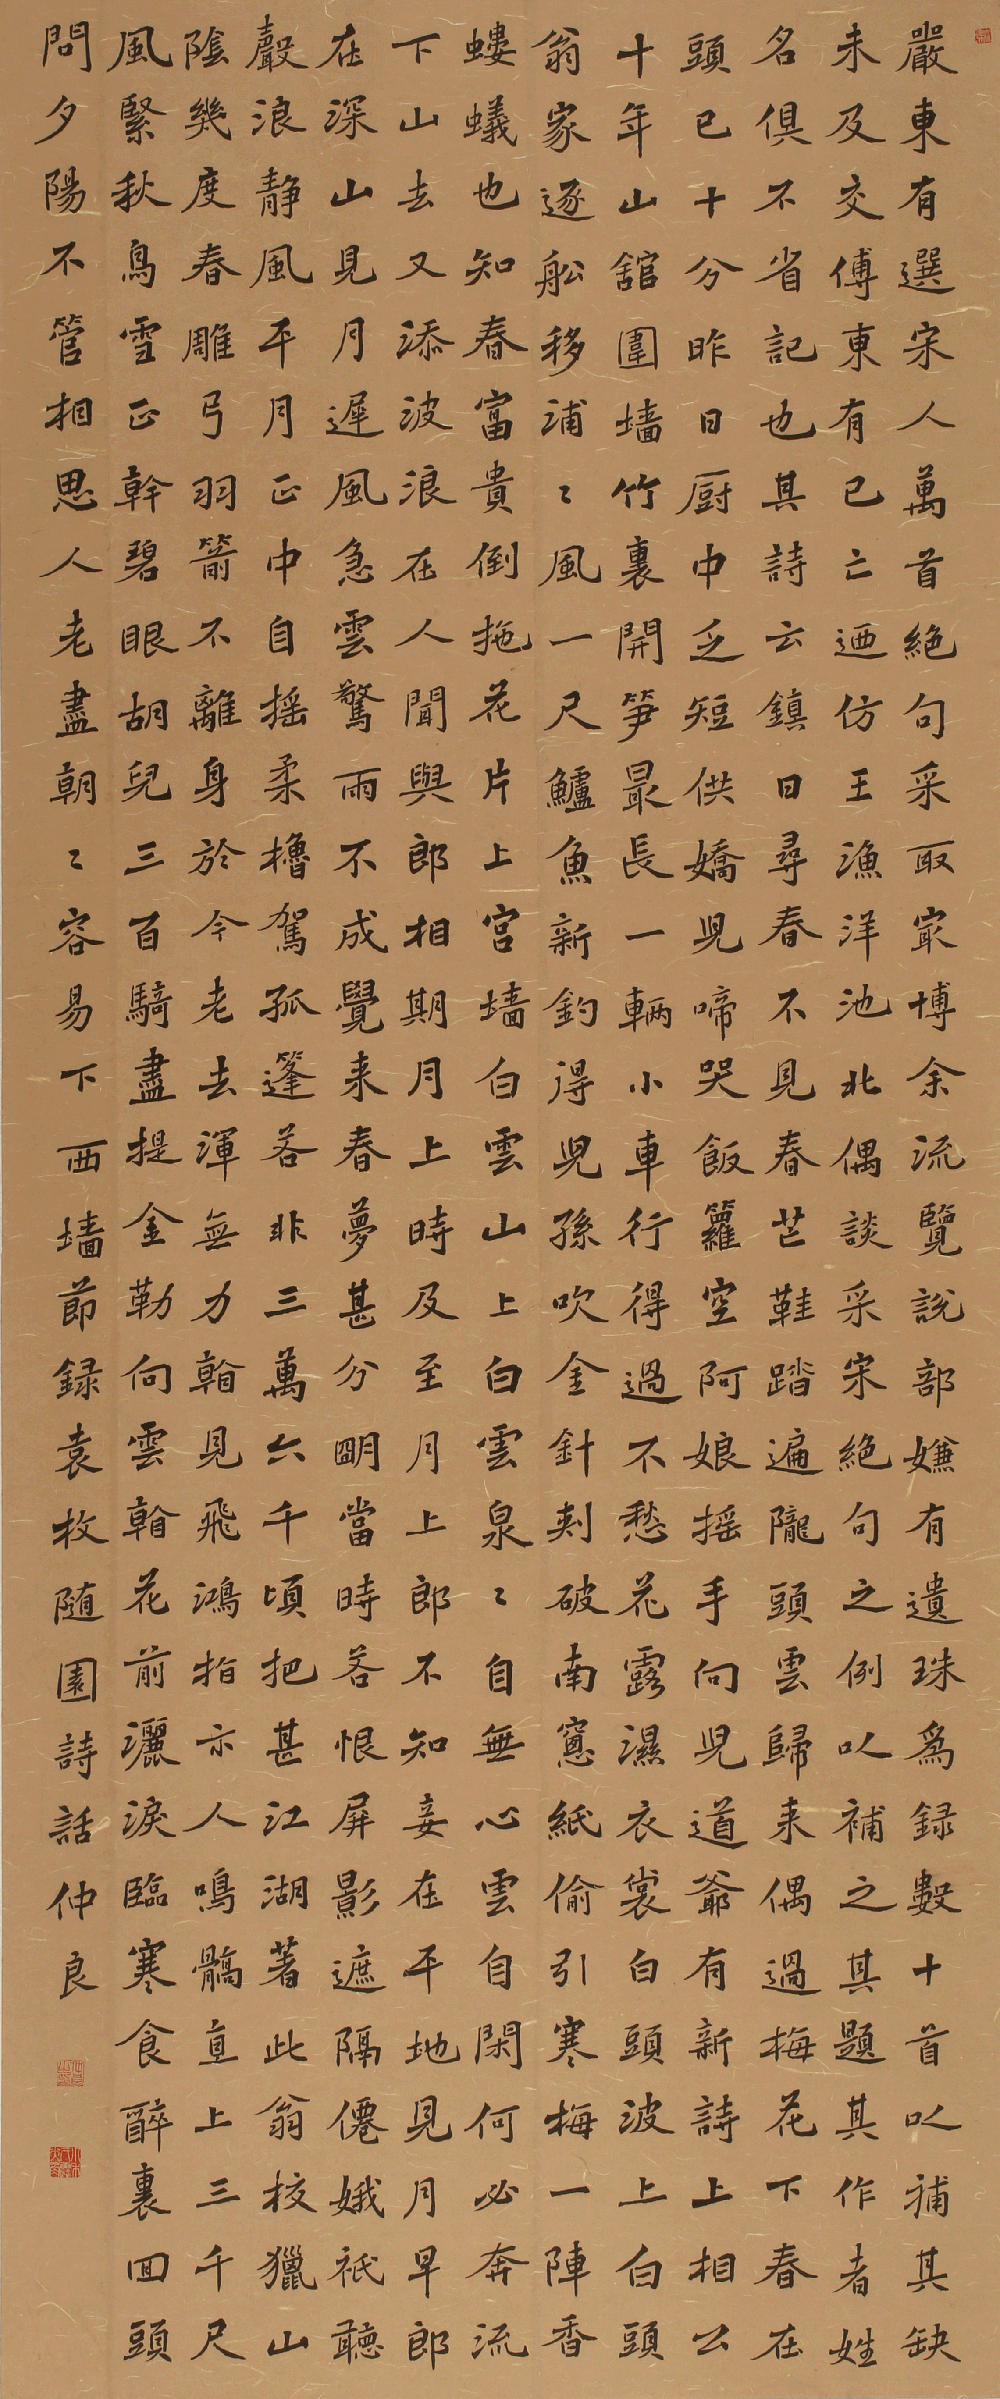 嚴東有選宋人萬首絕句采取冣博余流覽說部嫌有遺珠爲録數十首以補其缺
未及交傅東有已亡迺仿王漁洋池北偶談采宋絕句之例以補之其題其作者姓
名俱不省記也其詩云鎮日尋春不見春芒鞋踏遍隴頭雲歸来偶過梅花下春在
頭已十分昨日厨中乏短供嬌兒啼哭飯籮空阿娘摇手向兒道爺有新詩上相公
十年山舘圍墻竹裏開笋最長一輛小車行得過不愁花露濕衣裳白頭波上白頭
翁家逐船移浦〻風一尺鱸魚新釣得兒孫吹金針刺破南窻紙偷引寒梅一陣香
螻蟻也知春富貴倒拖花片上宮墻白雲山上白雲泉〻自無心雲自閑何必奔流
下山去又添波浪在人聞與郎相期月上時及至月上郎〻不知妾在平地見月早郎
在深山見月遲風急雲驚雨不成覺来春夢甚分朙當時若恨屏影遮隔僊娥祇聽
聲浪静風平月正中自摇柔櫓駕孤篷若非三萬六千頃把甚江湖著此翁校獵山
陰幾度春雕弓羽箭不離身於今老去渾無力翰見飛鴻指示人鳴髇直上三千尺
風緊秋鳥雪正幹碧眼胡兒三百騎盡提金勒向雲翰花前灑淚臨寒食醉裏回頭
問夕陽不管相思人老盡朝〻容易下西墻節録袁枚随園詩話仲良